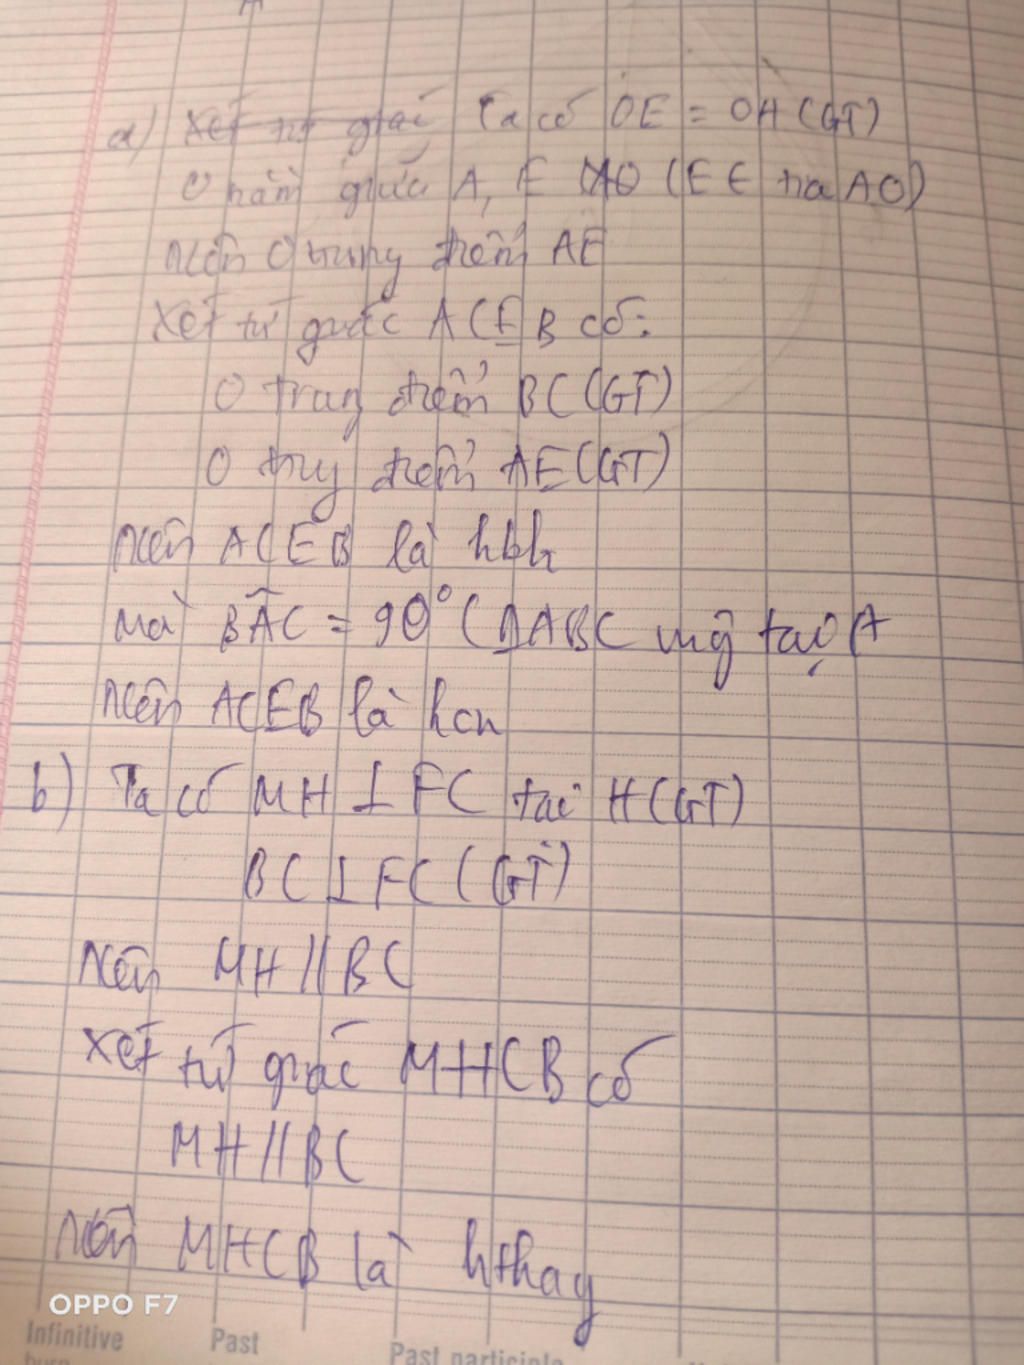 a) Xét tứ giác Ta có OE = OH (GT)
O nằm giữa A, E (E ∈ tia AO)
Nên O trung điểm AE
Xét tứ giác ACEB có:
O trung điểm BC (GT)
O trung điểm AE (GT)
Nên ACEB là hbh
Mà BÂC = 90° (ΔABC vuông tại A
Nên ACEB là hcn
b) Ta có MH ⊥ FC tại H (GT)
BC ⊥ FC (GT)
Nên MH // BC
Xét tứ giác MHCB có
MH // BC
Nên MHCB là hthag
OPPO F7
Infinitive Past Past participle
burn